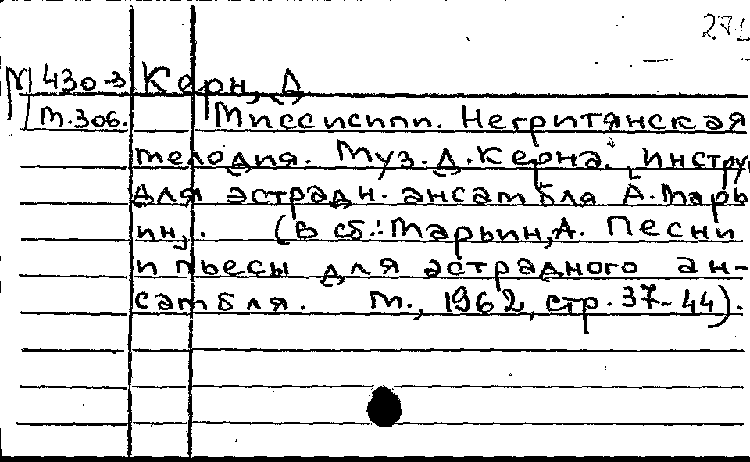 М 430-3 Керн, Д
т.306. Миссисипи. Негритянская
мелодия. Муз. Д. Керна. Инстру
для эстрадн. ансамбля А. Марь
ин,. (В сб.: Марьин, А. Песни
и пьесы для эстрадного ан-
самбля. М., 1962, стр. 37-44).